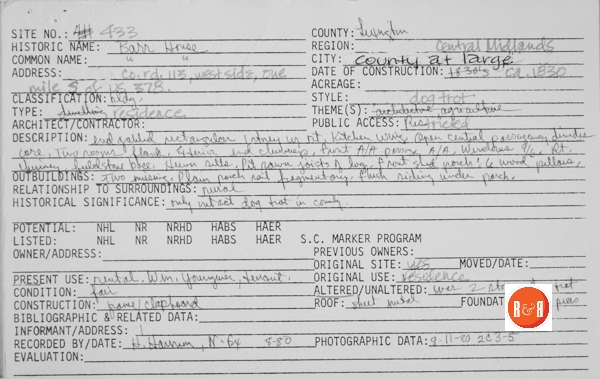 SITE NO.: # 433 COUNTY: Lexington
HISTORIC NAME: Barr House REGION: Central Midlands
COMMON NAME: " " CITY: county at large
ADDRESS: co. rd. 113, west side, one DATE OF CONSTRUCTION: 1830's ca. 1830
mile S of US 378. ACREAGE:
CLASSIFICATION: bldg. STYLE: dog trot
TYPE: dwelling residence THEME(S): architecture agriculture
ARCHITECT/CONTRACTOR: PUBLIC ACCESS: Restricted
DESCRIPTION: end gabled rectangular 1 story w/ Kitchen wing. Open central passageway divides
core. Two rooms flank. Exterior end chimneys. Front A/A A/A. Windows 9/6. Rt.
chimney fieldstone base. Hewn sills. Pit sawn joists & log. Front shed porch: 6 wood pillars,
OUTBUILDINGS: two missing. Plain porch rail fragmentary. Flush siding under porch.
RELATIONSHIP TO SURROUNDINGS: rural
HISTORICAL SIGNIFICANCE: only intact dog trot in county.
POTENTIAL: NHL NR NRHD HABS HAER
LISTED: NHL NR NRHD HABS HAER S.C. MARKER PROGRAM
OWNER/ADDRESS: PREVIOUS OWNERS:
ORIGINAL SITE: yes MOVED/DATE:
PRESENT USE: rental, Wm. Younginer, tenant. ORIGINAL USE: residence
CONDITION: fair ALTERED/UNALTERED: was 2
CONSTRUCTION: frame/clapboard ROOF: sheet metal FOUNDAT piers
BIBLIOGRAPHIC & RELATED DATA: R&R
INFORMANT/ADDRESS:
RECORDED BY/DATE: H. Harmon, N-64 8-80 PHOTOGRAPHIC DATA: 9-11-80 2C3-5
EVALUATION: